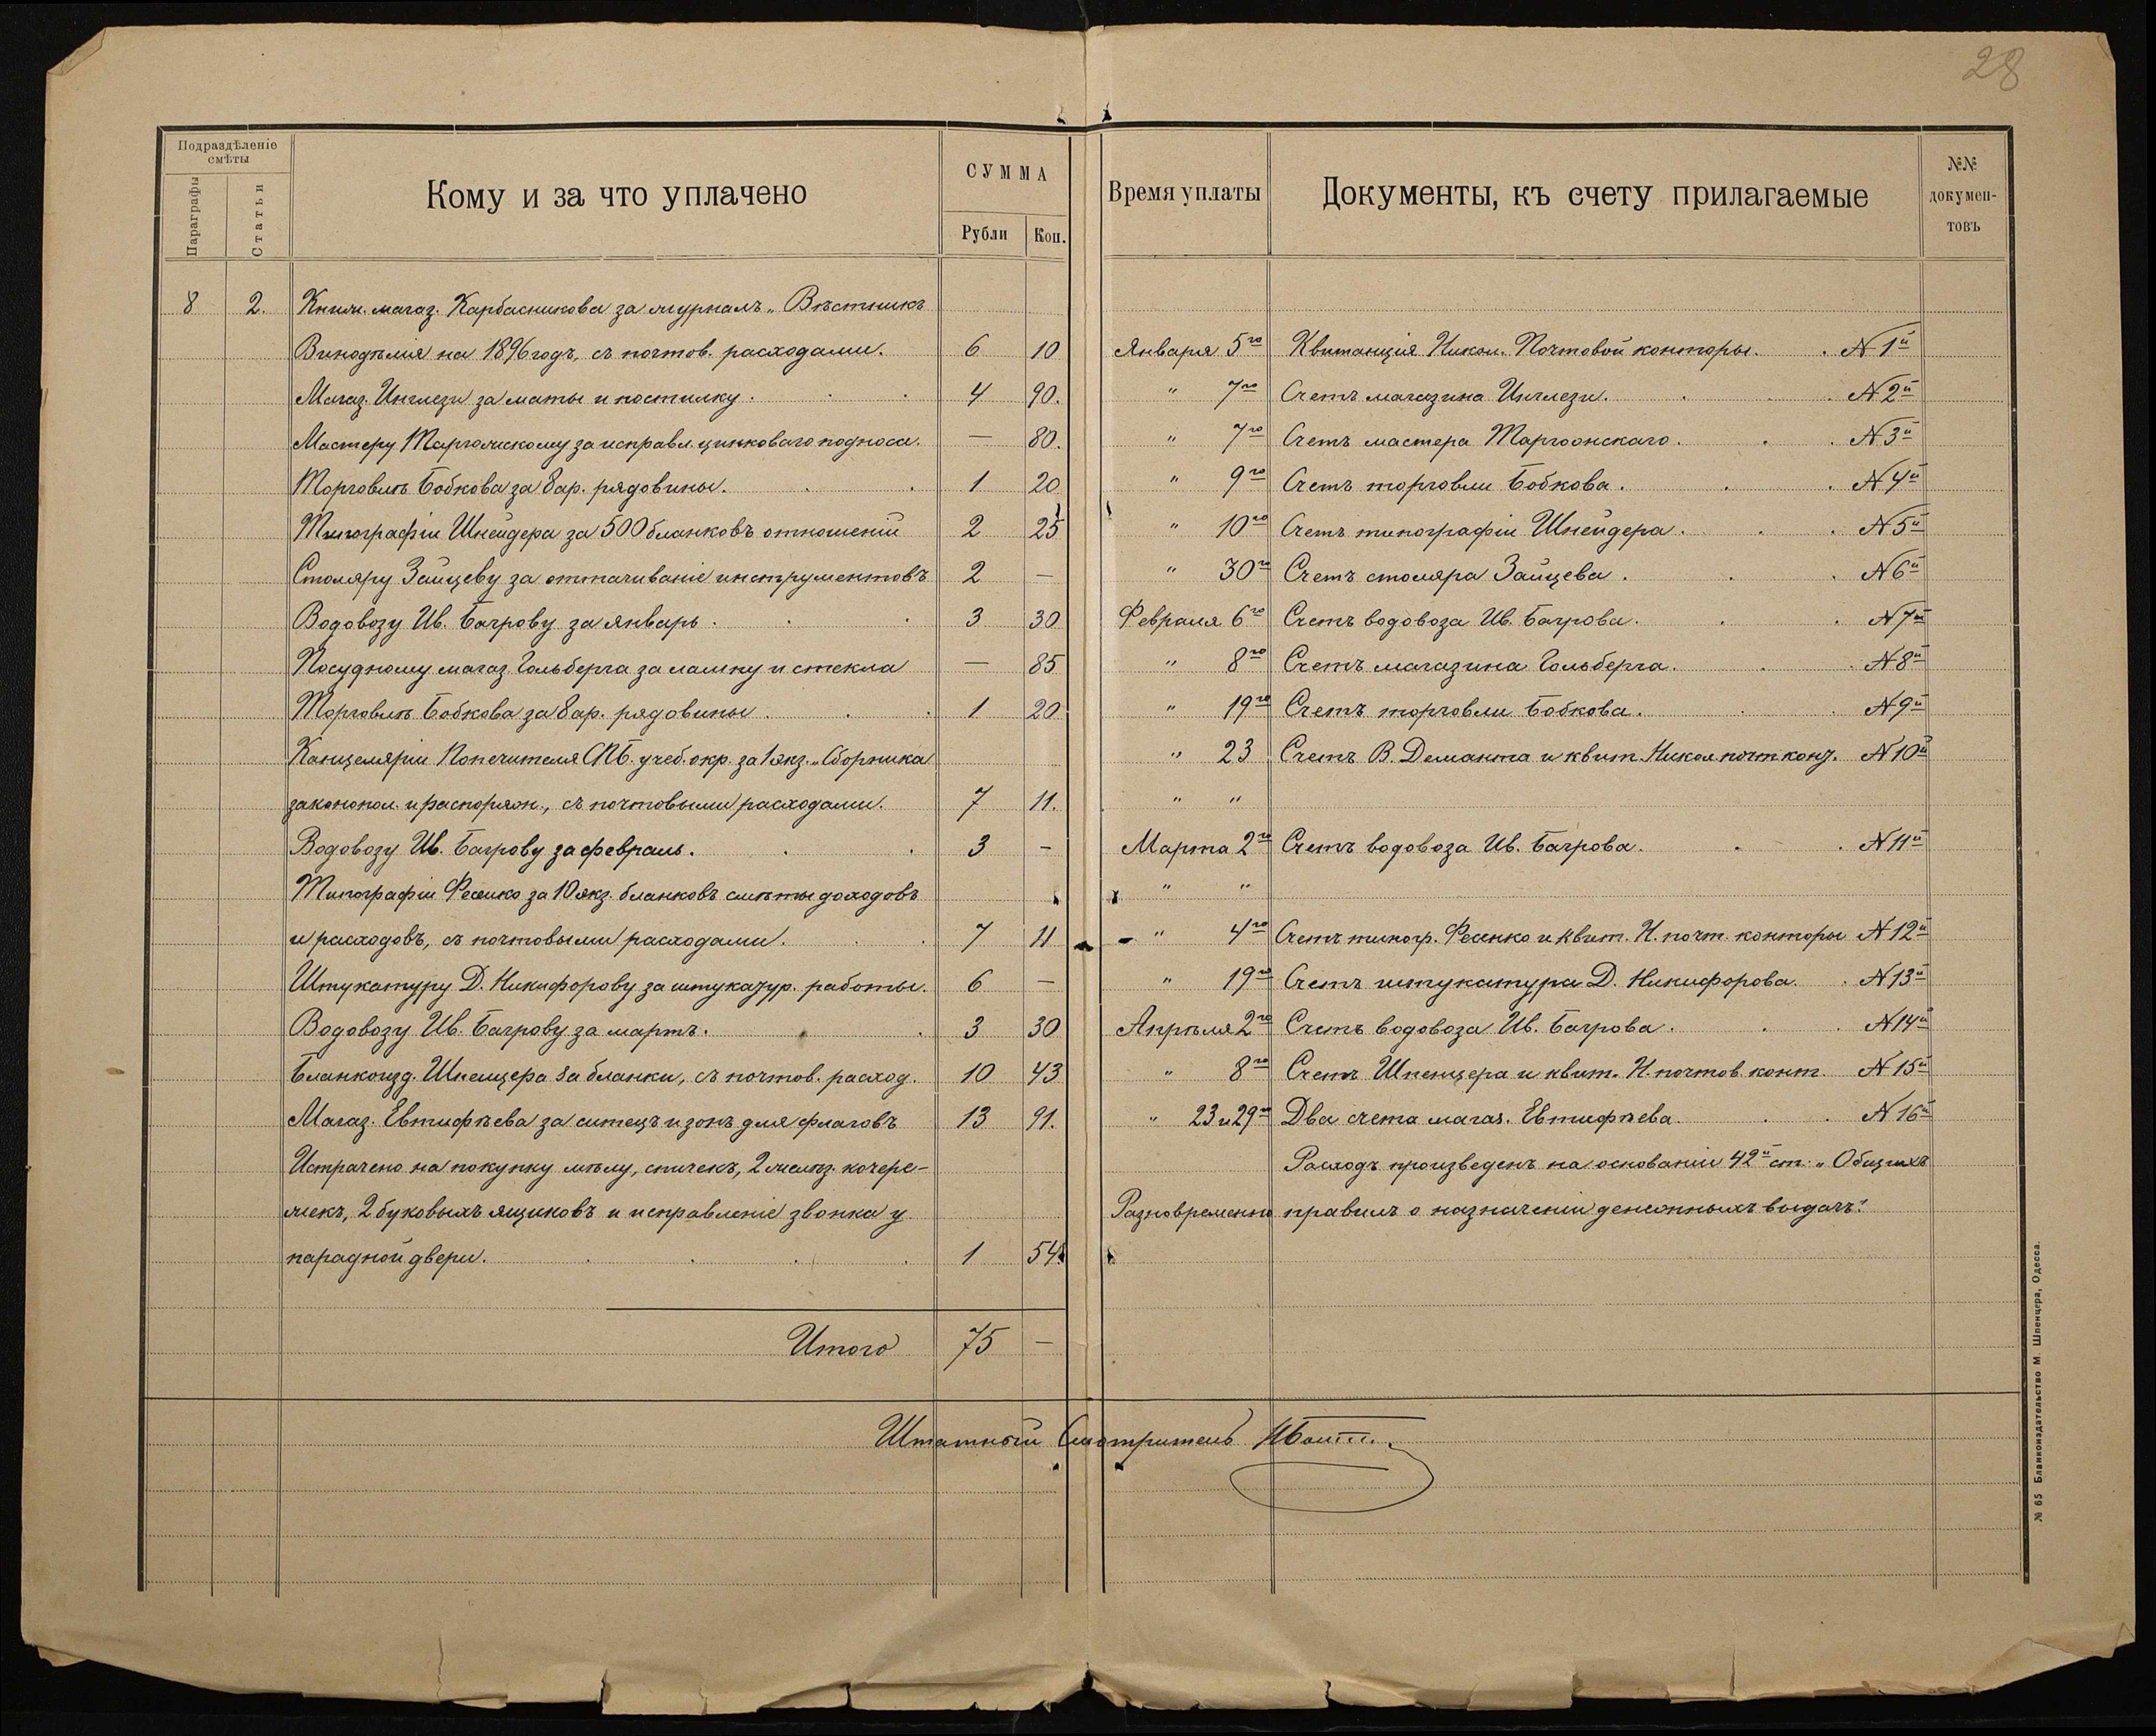 28
Подраздѣленіе
смѣты
Параграфы
Статьи
Кому и за что уплачено
СУММА
Рубли
Коп.
Время уплаты
Документы, къ счету прилагаемые
№№
докумен-
товъ
8 2. Книж. магаз. Карбасникова за журналъ „Вѣстникъ
Винодѣлія на 1896 годъ, съ почтов. расходами. 6 10 Января 5го Квитанція Никол. Почтовой конторы. N 1й
Магаз. Инглези за маты и постилку. 4 90. " 7го Счетъ магазина Инглези. N 2й
Мастеру за исправл. цинковаго подноса. — 80. " 7го Счетъ мастера N 3й
Торговлѣ Бобкова за 8 ар. рядовины. 1 20 " 9го Счетъ торговли Бобкова. N 4й
Типографіи Шнейдера за 500 бланковъ отношеній 2 25 " 10го Счетъ типографіи Шнейдера. N 5й
Столяру Зайцеву за оттачиваніе инструментовъ 2 — " 30го Счетъ столяра Зайцева. N 6й
Водовозу Ив. Багрову за январь. 3 30 Февраля 6го Счетъ водовоза Ив. Багрова. N 7й
Посудному магаз. Гольберга за лампу и стекла — 85 " 8го Счетъ магазина Гольберга. N 8й
Торговлѣ Бобкова за 8 ар. рядовины. 1 20 " 19го Счетъ торговли Бобкова. N 9й
Канцеляріи Попечителя СПБ. учеб. окр. за 1 экз. „Сборника " 23 Счетъ В. Деманта и квит. Никол. почт. конт. N 10й
законопол. и распоряж., съ почтовыми расходами. 7 11. " "
Водовозу Ив. Багрову за февраль. 3 - Марта 2го Счетъ водовоза Ив. Багрова. N 11й
Типографіи Фесенко за 10 экз. бланковъ смѣты доходовъ " "
и расходовъ, съ почтовыми расходами. 7 11 " 4го Счетъ типогр. Фесенко и квит. Н. почт. конторы N 12й
Штукатуру Д. Никифорову за штукатур. работы. 6 — " 19го Счетъ штукатура Д. Никифорова. N 13й
Водовозу Ив. Багрову за мартъ. 3 30 Апрѣля 2го Счетъ водовоза Ив. Багрова. N 14й
Бланкоизд. Шпенцера за бланки, съ почтов. расход. 10 43 " 8го Счетъ Шпенцера и квит. Н. почтов. конт. N 15й
Магаз. Евтифѣева за ситецъ и для флаговъ 13 91. " 23 и 29го Два счета магаз. Евтифѣева. N 16й
Истрачено на покупку мѣлу, спичекъ, 2 желѣз. кочере- Расходъ произведенъ на основаніи 42й ст. „Общихъ
жекъ, 2 буковыхъ ящиковъ и исправленіе звонка у Разновременно правилъ о назначеніи денежныхъ выдачъ."
парадной двери. 1 54
Итого 75 —
Штатный Смотритель
№ 65 Бланкоиздательство М. Шпенцера, Одесса.